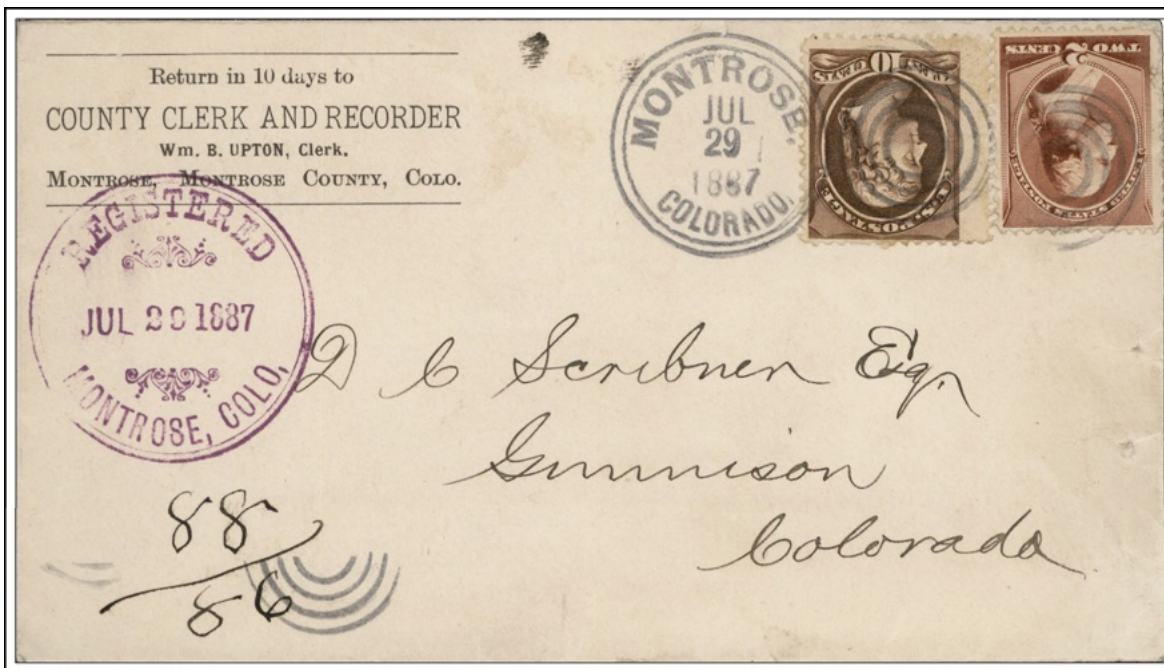 Return in 10 days to
COUNTY CLERK AND RECORDER
Wm. B. UPTON, Clerk.
MONTROSE, MONTROSE COUNTY, COLO.
MONTROSE,
JUL
29
1887
COLORADO,
10
TWO 2 CENTS
UNITED STATES POSTAGE
REGISTERED
JUL 29 1887
MONTROSE, COLO,
D C Scribner Esq.
Gunnison
Colorado
88
86